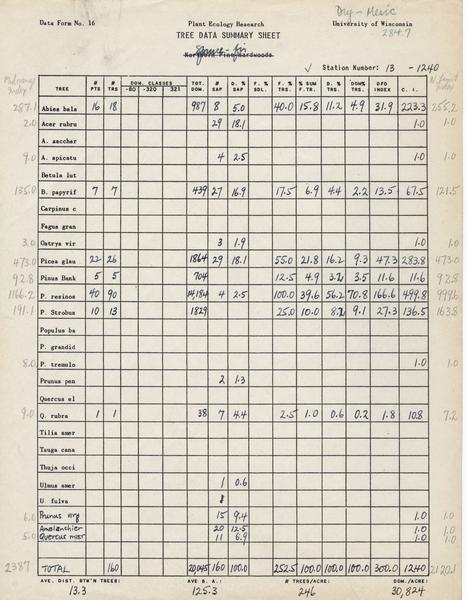 Dry-Mesic
Data Form No. 16 Plant Ecology Research University of Wisconsin
TREE DATA SUMMARY SHEET 284.7
Northern Pine Hardwoods
√ Station Number: 13 - 1240
TREE # PTS # TRS DOM. CLASSES -80 -320 321 TOT. DOM. # SAP D. % SAP F. % SDL. F. % TRS. % SUM F.TR. D. % TRS. DOM% TRS. DFD INDEX C. I.
287.1 Abies bala 16 18 987 8 5.0 40.0 15.8 11.2 4.9 31.9 223.3 255.2
2.0 Acer rubru 29 18.1 1.0 1.0
A. sacchar
9.0 A. spicatu 4 2.5 1.0 1.0
Betula lut
135.0 B. papyrif 7 7 439 27 16.9 17.5 6.9 4.4 2.2 13.5 67.5 121.5
Carpinus c
Fagus gran
3.0 Ostrya vir 3 1.9 1.0 1.0
473.0 Picea glau 22 26 1864 29 18.1 55.0 21.8 16.2 9.3 47.3 283.8 473.0
92.8 Pinus Bank 5 5 704 12.5 4.9 3.2 3.5 11.6 11.6 92.8
1166.2 P. resinos 40 90 14,184 4 2.5 100.0 39.6 56.2 70.8 166.6 499.8 999.6
191.1 P. Strobus 10 13 1829 25.0 10.0 8.2 9.1 27.3 136.5 163.8
Populus ba
P. grandid
8.0 P. tremulo 1.0 1.0
Prunus pen 2 1.3
Quercus el
9.0 Q. rubra 1 1 38 7 4.4 2.5 1.0 0.6 0.2 1.8 10.8 7.2
Tilia amer
Tsuga cana
Thuja occi
Ulmus amer 1 0.6
U. fulva
6.0 Prunus virg 15 9.4 1.0 1.0
Amelanchier 20 12.5 1.0 1.0
5.0 Quercus macr 11 6.9 1.0 1.0
2387 TOTAL 160 20,045 160 100.0 252.5 100.0 100.0 100.0 300.0 1240 2120.1
AVE. DIST. BTW'N TREES: AVE. B. A.: # TREES/ACRE: DOM./ACRE:
13.3 125.3 246 30,824